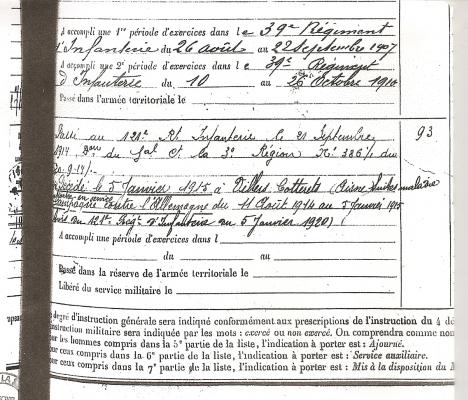 A accompli une 1re période d'exercices dans le 39e Régiment
d'Infanterie du 26 août au 22 septembre 1907
A accompli une 2e période d'exercices dans le 39e Régiment
d'Infanterie du 10 au 26 Octobre 1910
Passé dans l'armée territoriale le
Passé au 121e Rt Infanterie le 21 Septembre 93
1914, Don du Gal Ct la 3e Région No 386/1 du
20.9.14
Décédé le 5 Janvier 1915 à Villers Cotterets (Aisne) maladie
Campagne contre l'Allemagne du 11 Août 1914 au 5 Janvier 1915
Avis du 121e Régt d'Infanterie du 5 Janvier 1920)
A accompli une période d'exercices dans l
du au
Passé dans la réserve de l'armée territoriale le
Libéré du service militaire le
degré d'instruction générale sera indiqué conformément aux prescriptions de l'instruction du 4
instruction militaire sera indiquée par les mots : exercé ou non exercé. On comprendra comme non
les hommes compris dans la 5e partie de la liste, l'indication à porter est : Ajourné.
ceux compris dans la 6e partie de la liste, l'indication à porter est : Service auxiliaire.
ceux compris dans la 7e partie de la liste, l'indication à porter est : Mis à la disposition du M